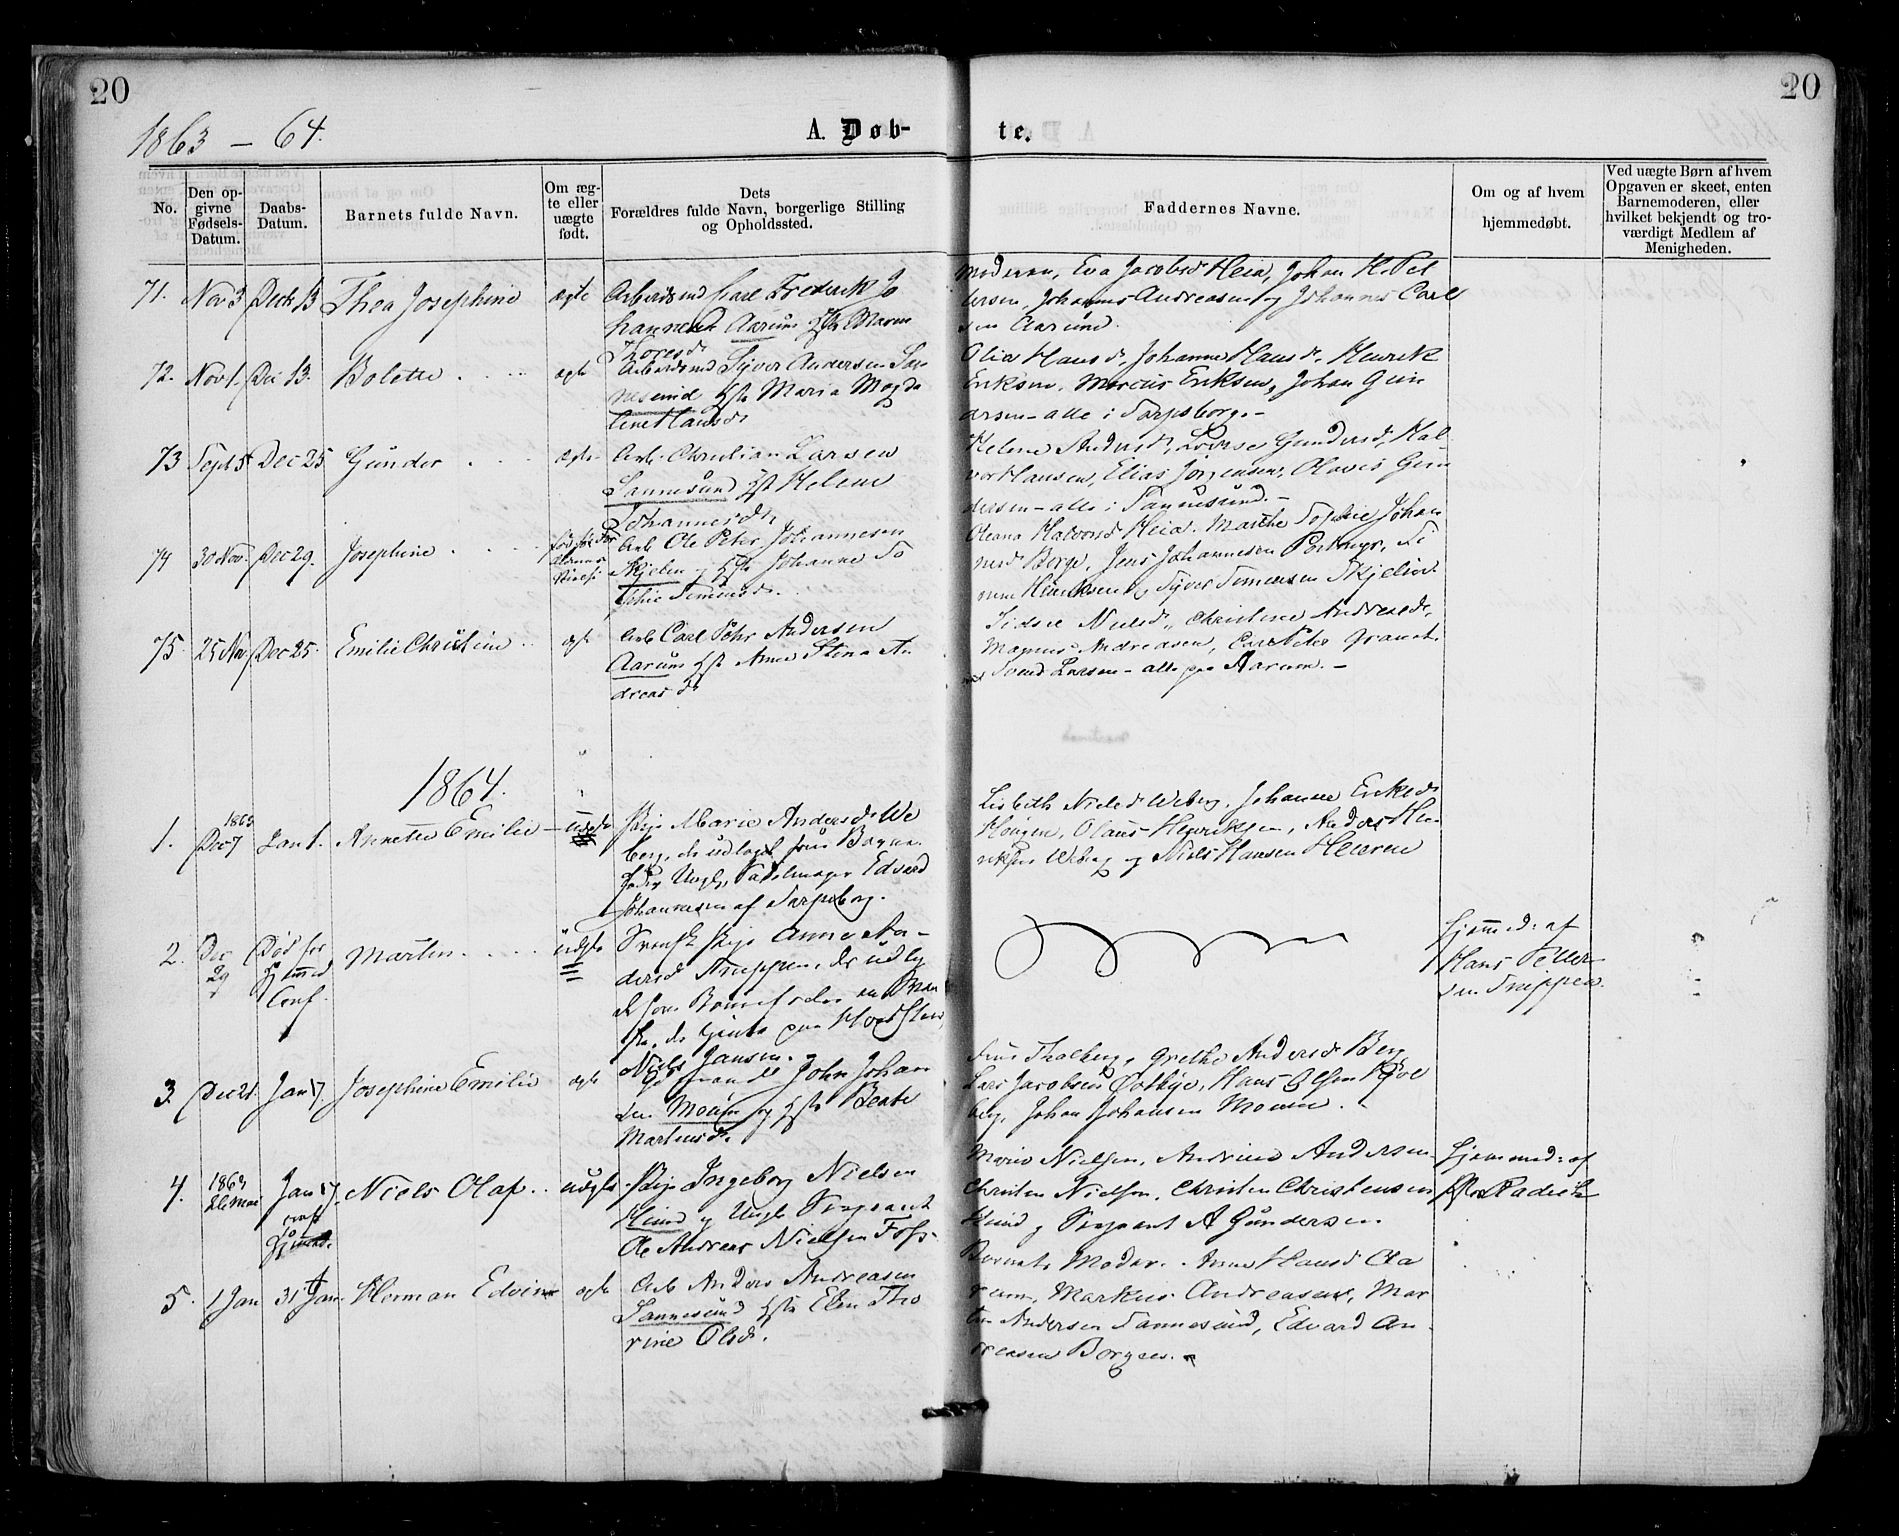 20
20
1863 – 64.
A. Døb-
te.
No.
Den op-
givne
Fødsels-
Datum.
Daabs-
Datum.
Barnets fulde Navn.
Om æg-
te eller
uægte
født.
Dets
Forældres fulde Navn, borgerlige Stilling
og Opholdssted.
Faddernes Navne.
Om og af hvem
hjemmedøbt.
Ved uægte Børn af hvem
Opgaven er skeet, enten
Barnemoderen, eller
hvilket bekjendt og tro-
værdigt Medlem af
Menigheden.
71. Nov 3 Dech 13 Thea Josephine ægte
Arbeidsmd Carl Frederik Jo
hannesen Aarum Hst Maren
Thoresd
Moderen, Eva Jacobsd Heia, Johan H. Pet
tersen, Johannes Andreasen og Johannes Carl
sen Aarum.
72. Nov 1. Dec 13. Bolette . . . . ægte
Arbeidsmd Syver Andersen San
nesund Hst Maria Magda
line Hansd
Olia Hansd, Johanne Hansd, Henrik
Eriksen, Marcus Eriksen, Johan Gun
dersen – alle i Sarpsborg. –
73 Sept 5 Dec 25 Gunder . . . ægte
Arb. Christian Larsen
Sannesund Hst Helene
Johannesd.
Helene Andersd, Lovise Gundersd, Hal
vor Hansen, Elias Jørgensen, Olaves Gun
dersen – alle i Sannesund. –
74 30 Nov. Dec 29. Josephine . . . .
Arb Ole Peter Johannesen
Skjelin og Hst Johanne So
phie Simensd.
Oleana Halvorsd Heia. Marthe Sophie Johan
nesd Berge, Jens Johannesen Postmyr, Si
men Henriksen og Syver Simensen Skjelin.
75. 25 Nov Dec 25. Emilie Christine . . ægte
Arb Carl Petr Andersen
Aarum Hst Anne Stina An
dreasd
Sidsel Nielsd, Christine Andreasd,
Magnus Andreasen, Carl Peter Granat
Svend Larsen – alle paa Aarum. –
1864.
1. 1863
Dec 7 Jan 1. Annette Emilie – uægte
Pige Marie Andersd We
berg, der udlagt som Barne
fader Ungk, Sadelmager Edvard
Johannesen af Sarpsborg.
Lisbeth Nielsd Weberg, Johanne Eriksd
Haugen, Olaus Henriksen, Anders Hen
riksen Weberg og Niels Hansen Heieren
2. Dec
29 Død før
Hjemmed
Conf. Martin . . . . . uægte
Svensk Pige Anne An-
dersd Truppen, der udlag
de som Barnefader en Svens
ke, der tjente paa Hafslund,
Niels Jansen.
Hjemmed: af
Hans Petter
sen Truppen.
3. Dec 21. Jan 17. Josephine Emilie ægte
Gd mand John Johan
sen Moum og Hst Beate
Martensd.
Frue Thalberg, Grethe Andersd Berg,
Lars Jacobsen Østbye, Hans Olsen Kjol
berg, Johan Johansen Moum. –
4. 1863 Jan 17. Niels Olaf . . uægte
conf
Hjemmed.
Pige Ingeborg Nielsen
Hund og Ungk Sergeant
Ole Andreas Nielsen Foss.
Marie Nielsen, Andrine Andersen
Christen Nielsen, Christen Christensen
Hund og Sergeant A Gundersen.
Hjemmed: af
5. 1 Jan 31 Jan. Herman Edvin ægte
Arb Anders Andreasen
Sannesund Hst Elen Tho
rine Olsd.
Barnets Moder. Anne Hansd Aa
rum, Markus Andreasen, Mar
tin Andersen Sannesund, Edvard An
dreasen Borgen. –